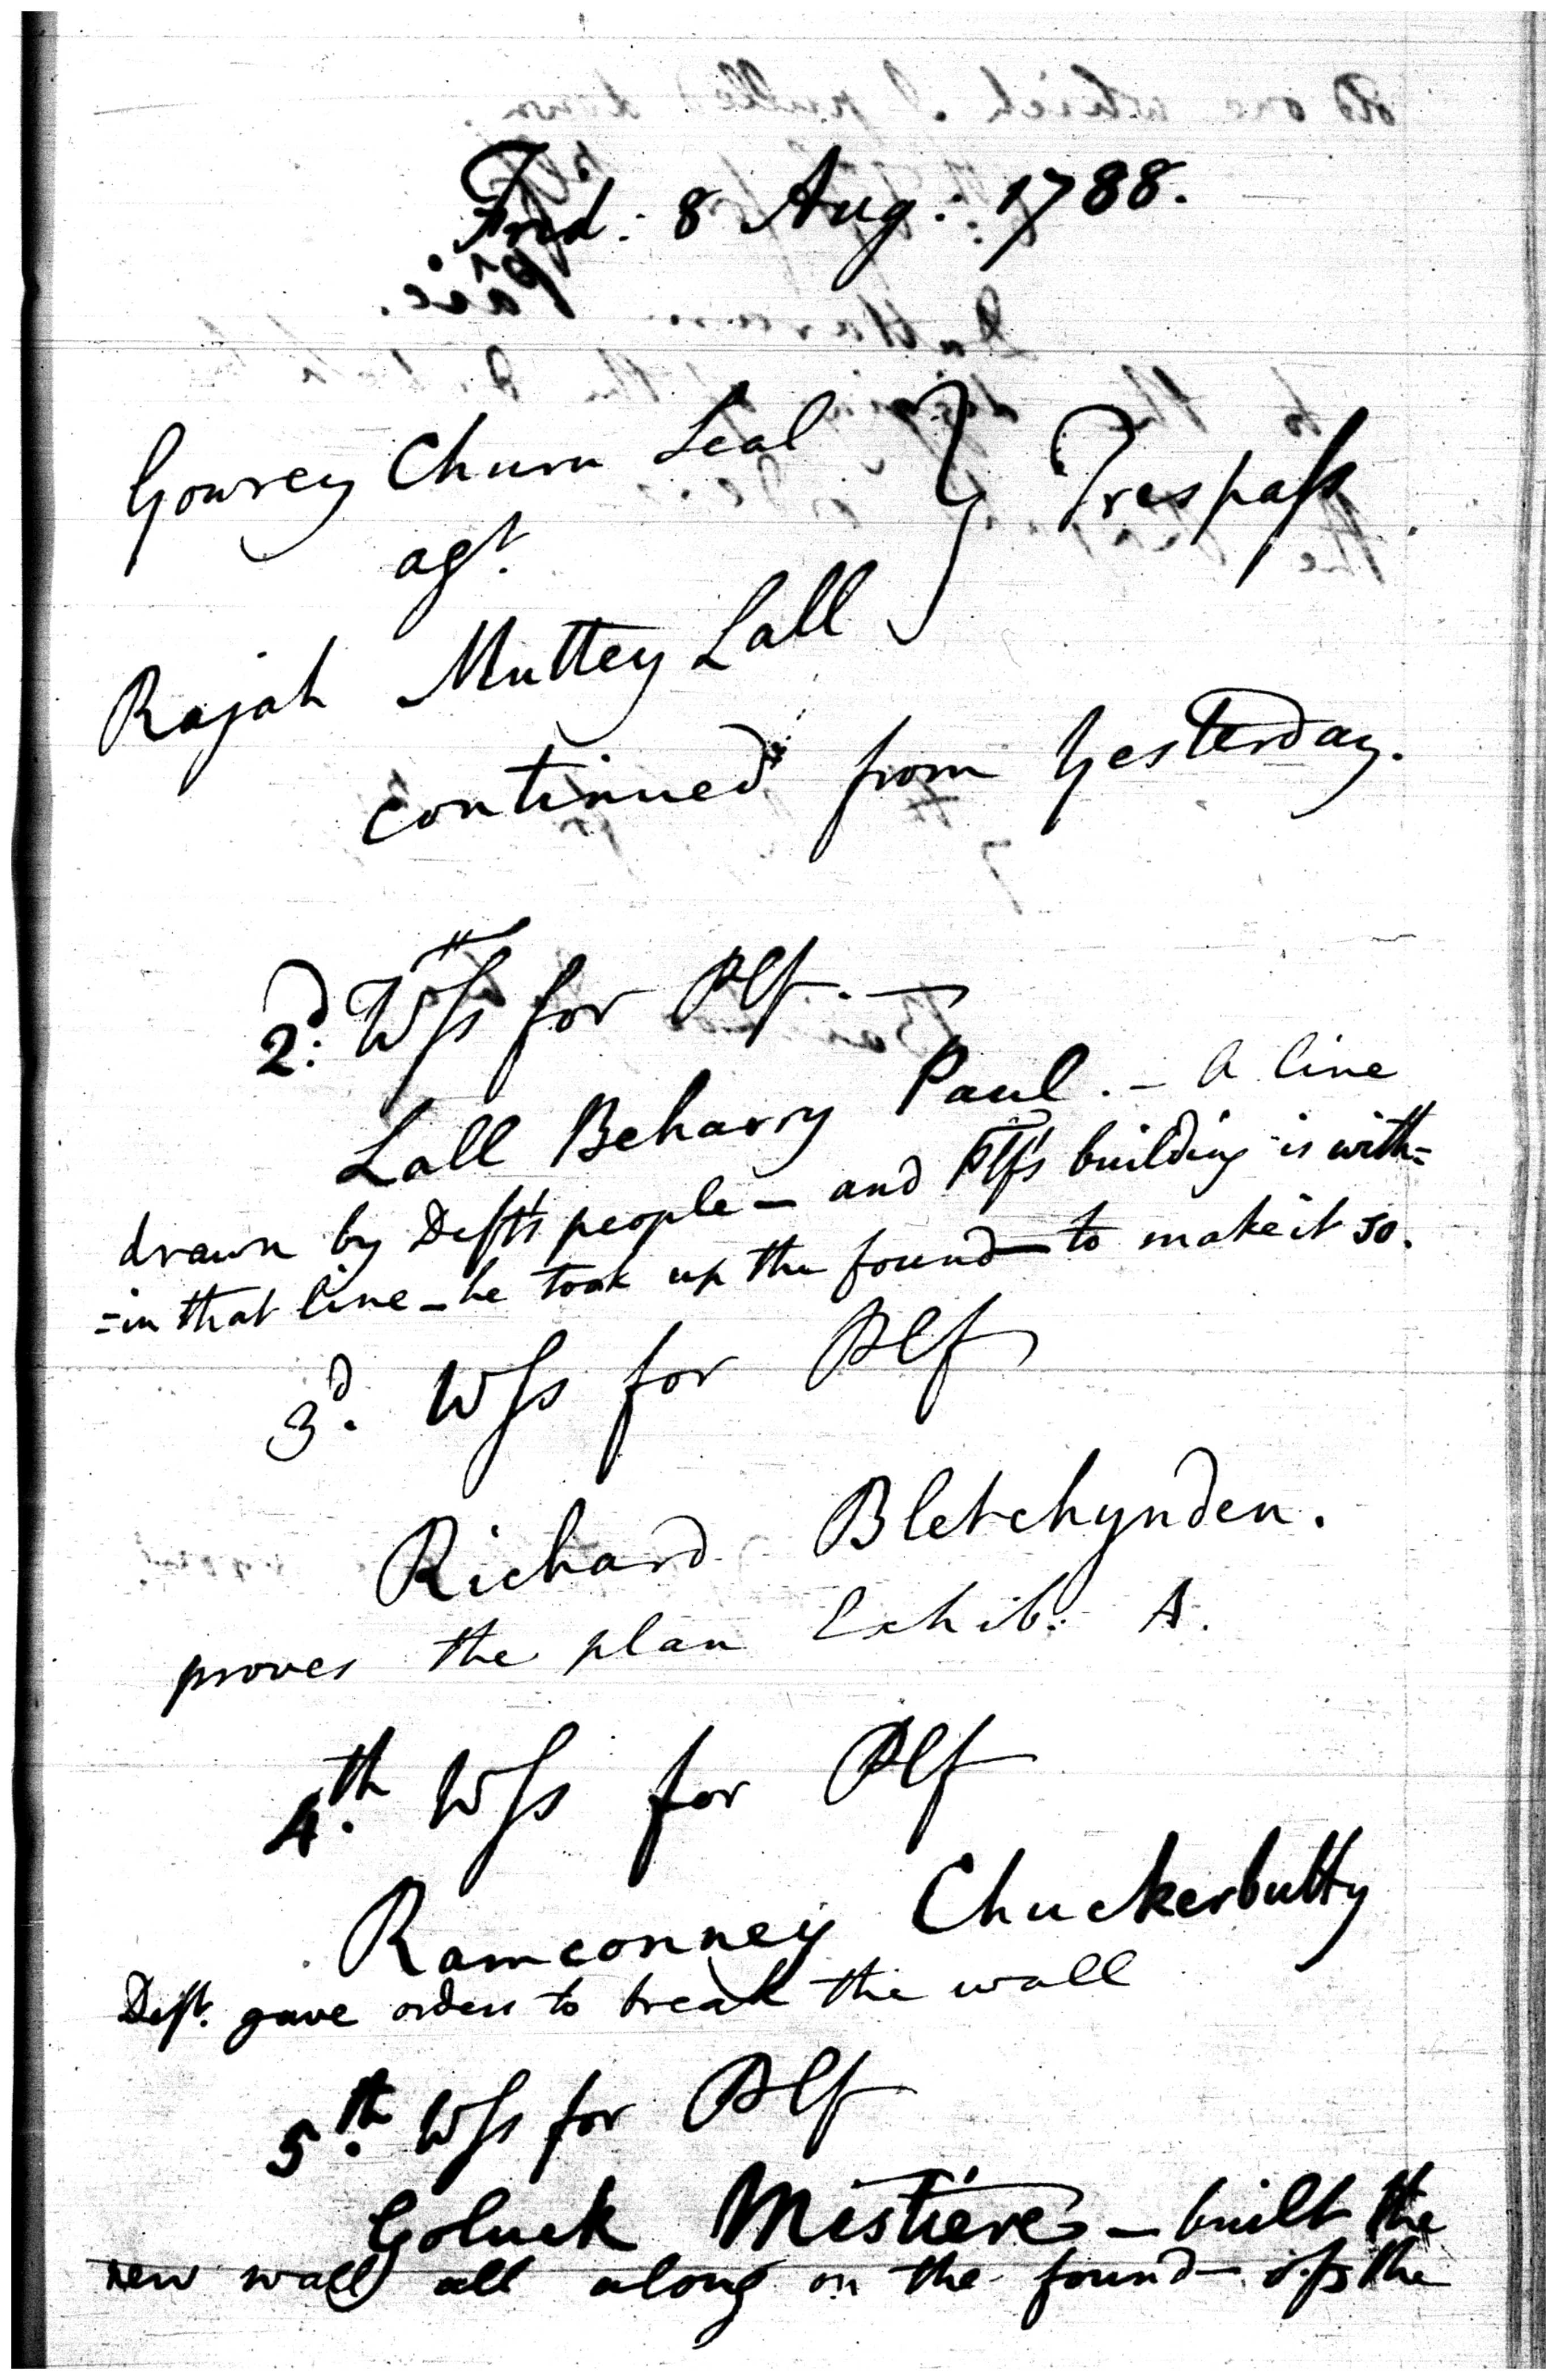 Frid: 8 Aug: 1788.
Gowrey Churn Seal
agt.
Trespass
Rajah Muttey Lall
continued from Yesterday.
2d: Wss for Plf. —
Lall Beharry Paul. — A line
drawn by Deft's people — and Plf's building is with=
=in that line — he took up the found— to make it so.
3d. Wss for Plf
Richard Bletchynden.
proves the plan Exhib: A.
4th. Wss for Plf
Ramconney Chuckerbutty
Deft. gave orders to break the wall
5th. Wss for Plf
Goluck Mistiére — built the
new wall all along on the found— of the